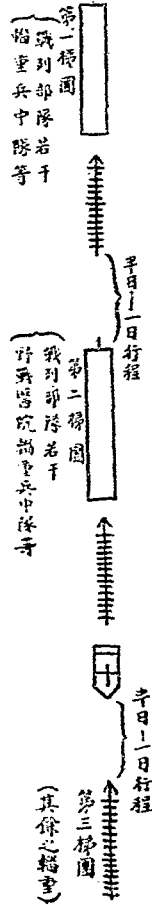 第一梯團
戰列部隊若干
輜重兵中隊等
半日~一日行程
第二梯團
戰列部隊若干
野戰醫院輜重兵中隊等
半日~一日行程
第三梯團
(其餘之輜重)